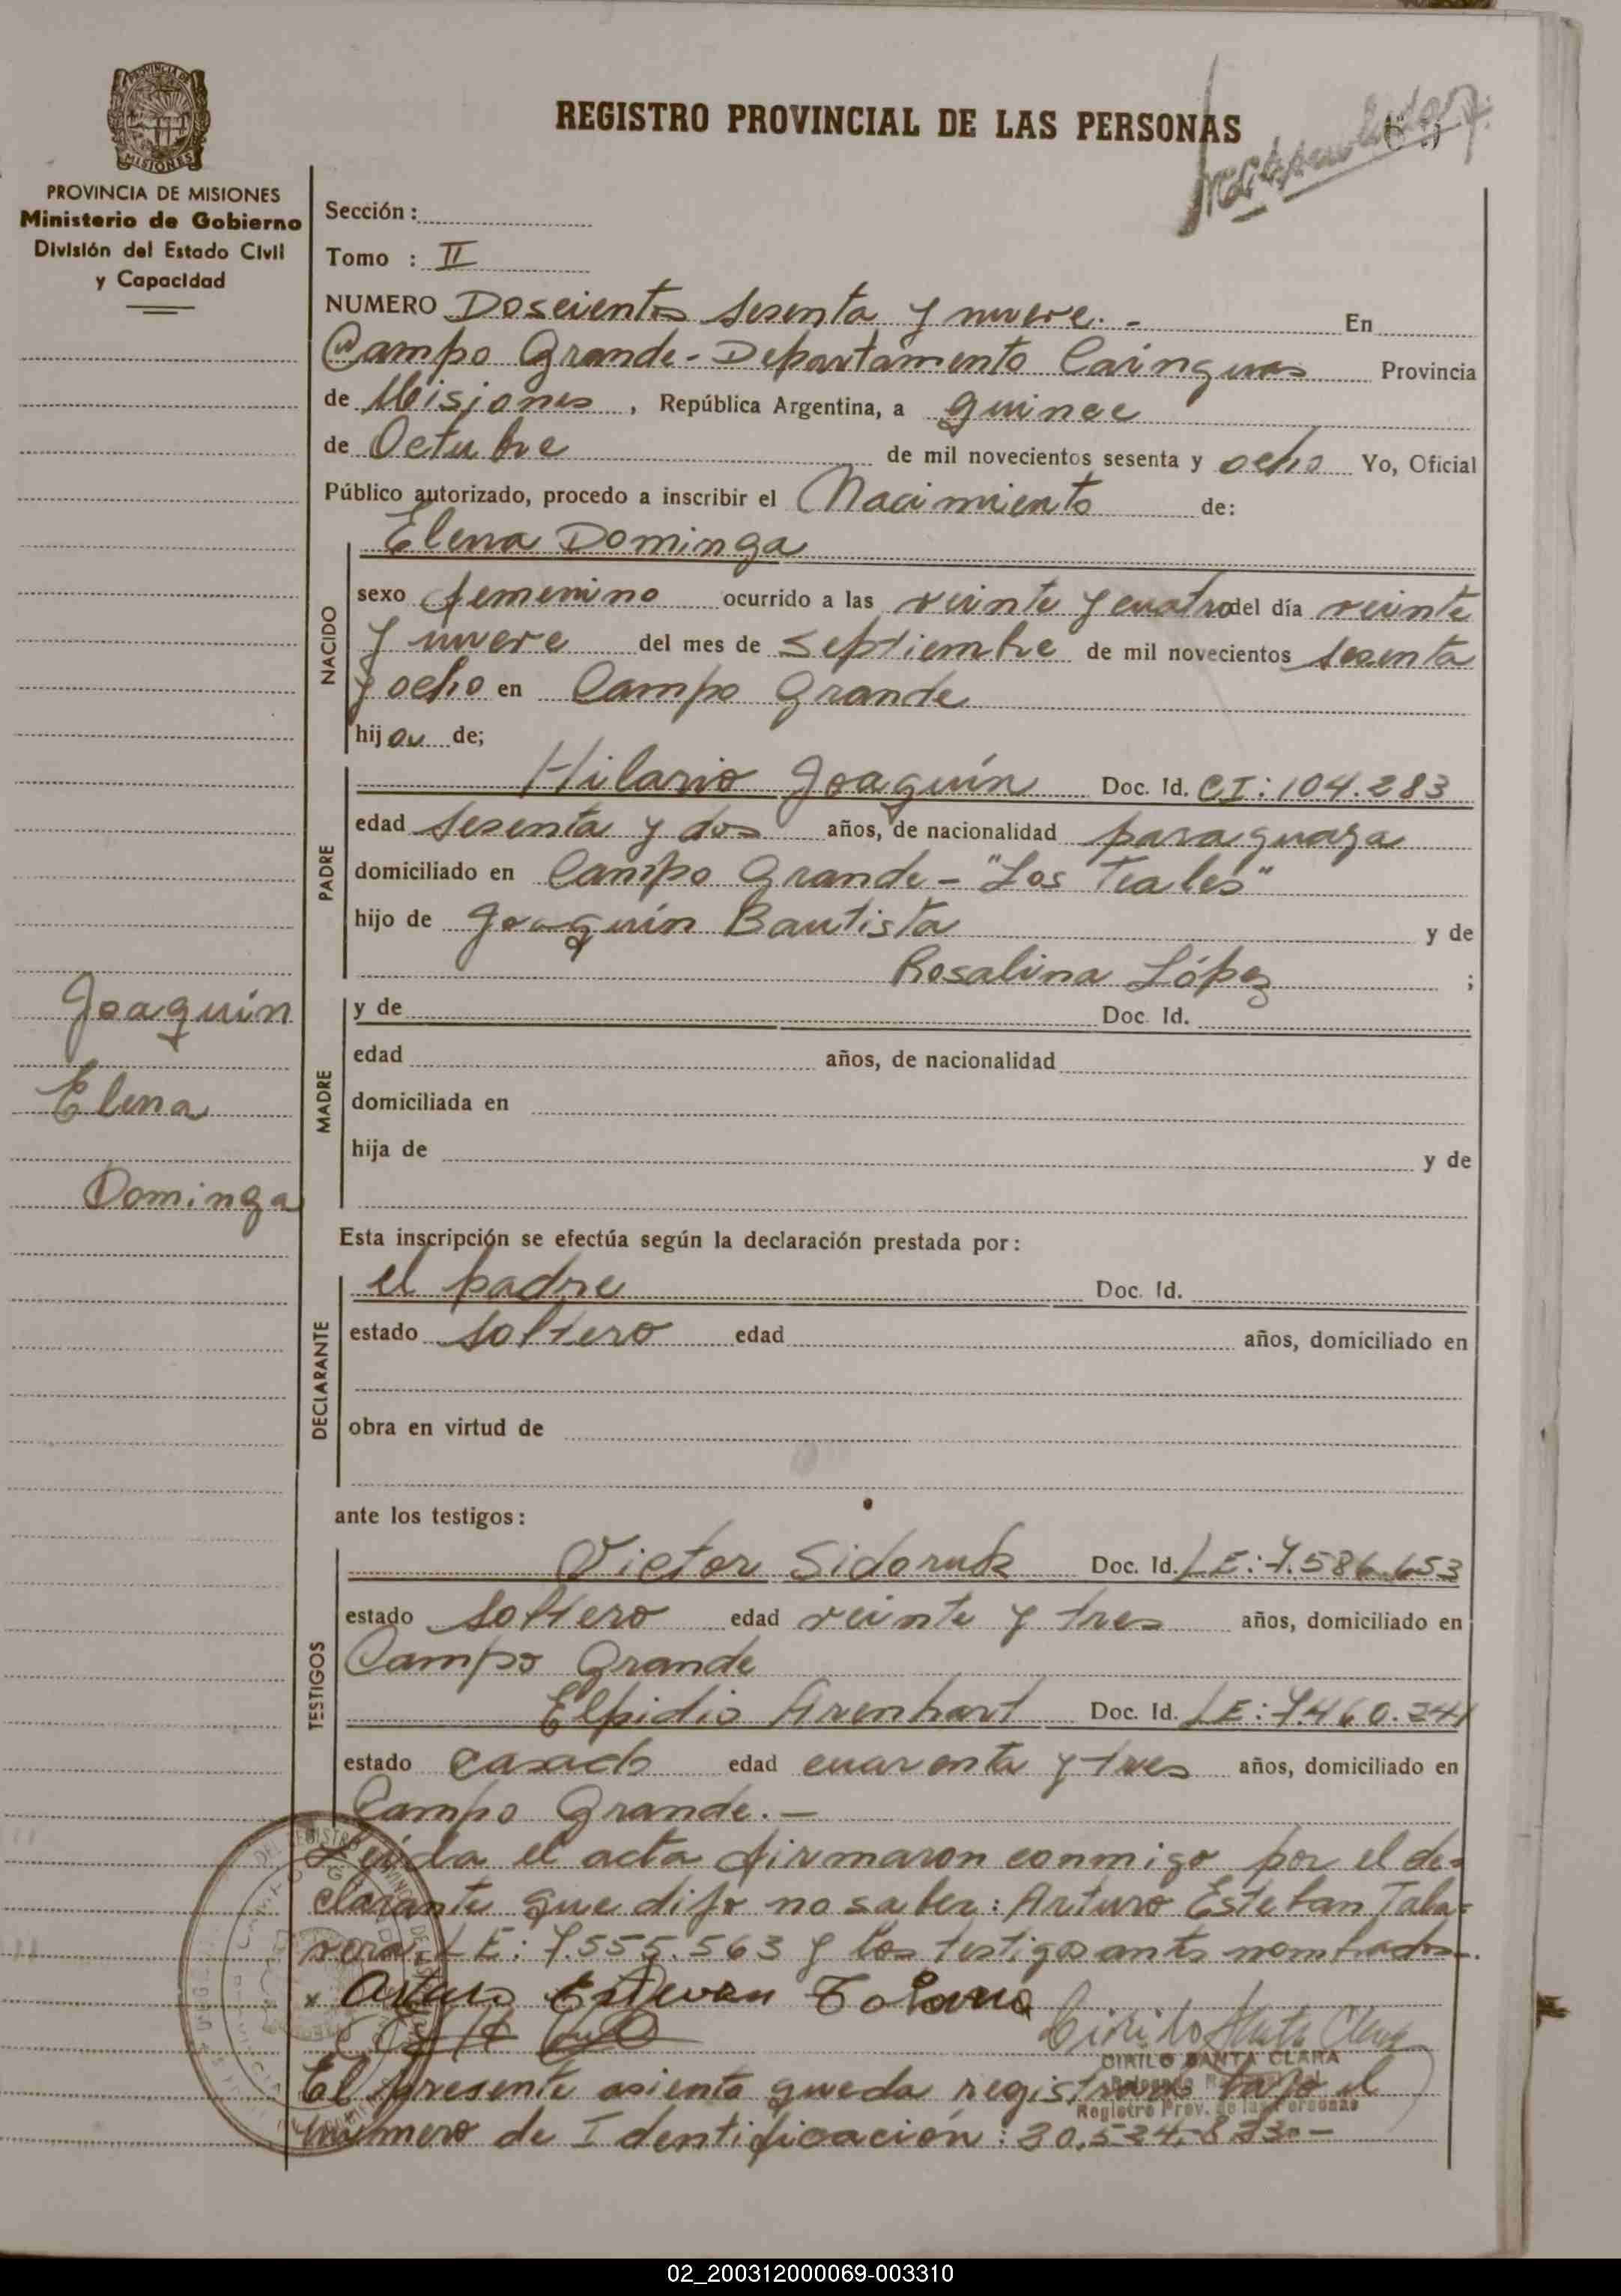 REGISTRO PROVINCIAL DE LAS PERSONAS
PROVINCIA DE MISIONES
Ministerio de Gobierno
División del Estado Civil
y Capacidad
Sección :
Tomo : II
NUMERO Doscientos sesenta y nueve. - En
Campo Grande - Departamento Cainguas Provincia
de Misiones , República Argentina, a quince
de Octubre de mil novecientos sesenta y ocho Yo, Oficial
Público autorizado, procedo a inscribir el Nacimiento de:
Elena Dominga
NACIDO
sexo femenino ocurrido a las veinte y cuatro del día veinte
y nueve del mes de Septiembre de mil novecientos sesenta
y ocho en Campo Grande
hij a de;
PADRE
Hilario Joaquín Doc. Id. CI: 104.283
edad sesenta y dos años, de nacionalidad paraguaya
domiciliado en Campo Grande - "Los Teales"
hijo de Joaquín Bautista y de
Rosalina López ;
Joaquín
Elena
Dominga
MADRE
y de Doc. Id.
edad años, de nacionalidad
domiciliada en
hija de y de
Esta inscripción se efectúa según la declaración prestada por :
DECLARANTE
el padre Doc. Id.
estado soltero edad años, domiciliado en
obra en virtud de
ante los testigos :
TESTIGOS
Victor Sidoruk Doc. Id. LE: 7.586.653
estado soltero edad veinte y tres años, domiciliado en
Campo Grande
Elpidio Arenhart Doc. Id. LE: 7.460.241
estado casado edad cuarenta y tres años, domiciliado en
Campo Grande. -
Leída el acta firmaron conmigo por el de-
clarante que dijo no saber: Arturo Esteban Tala-
vera, LE: 7.555.563 y los testigos antes nombrados.
x Arturo Estevan
Cirilo Santa Clara
CIRILO SANTA CLARA
Registro Prov. de las Personas
El presente asiento queda registrado bajo el
número de Identificación:
02_200312000069-003310